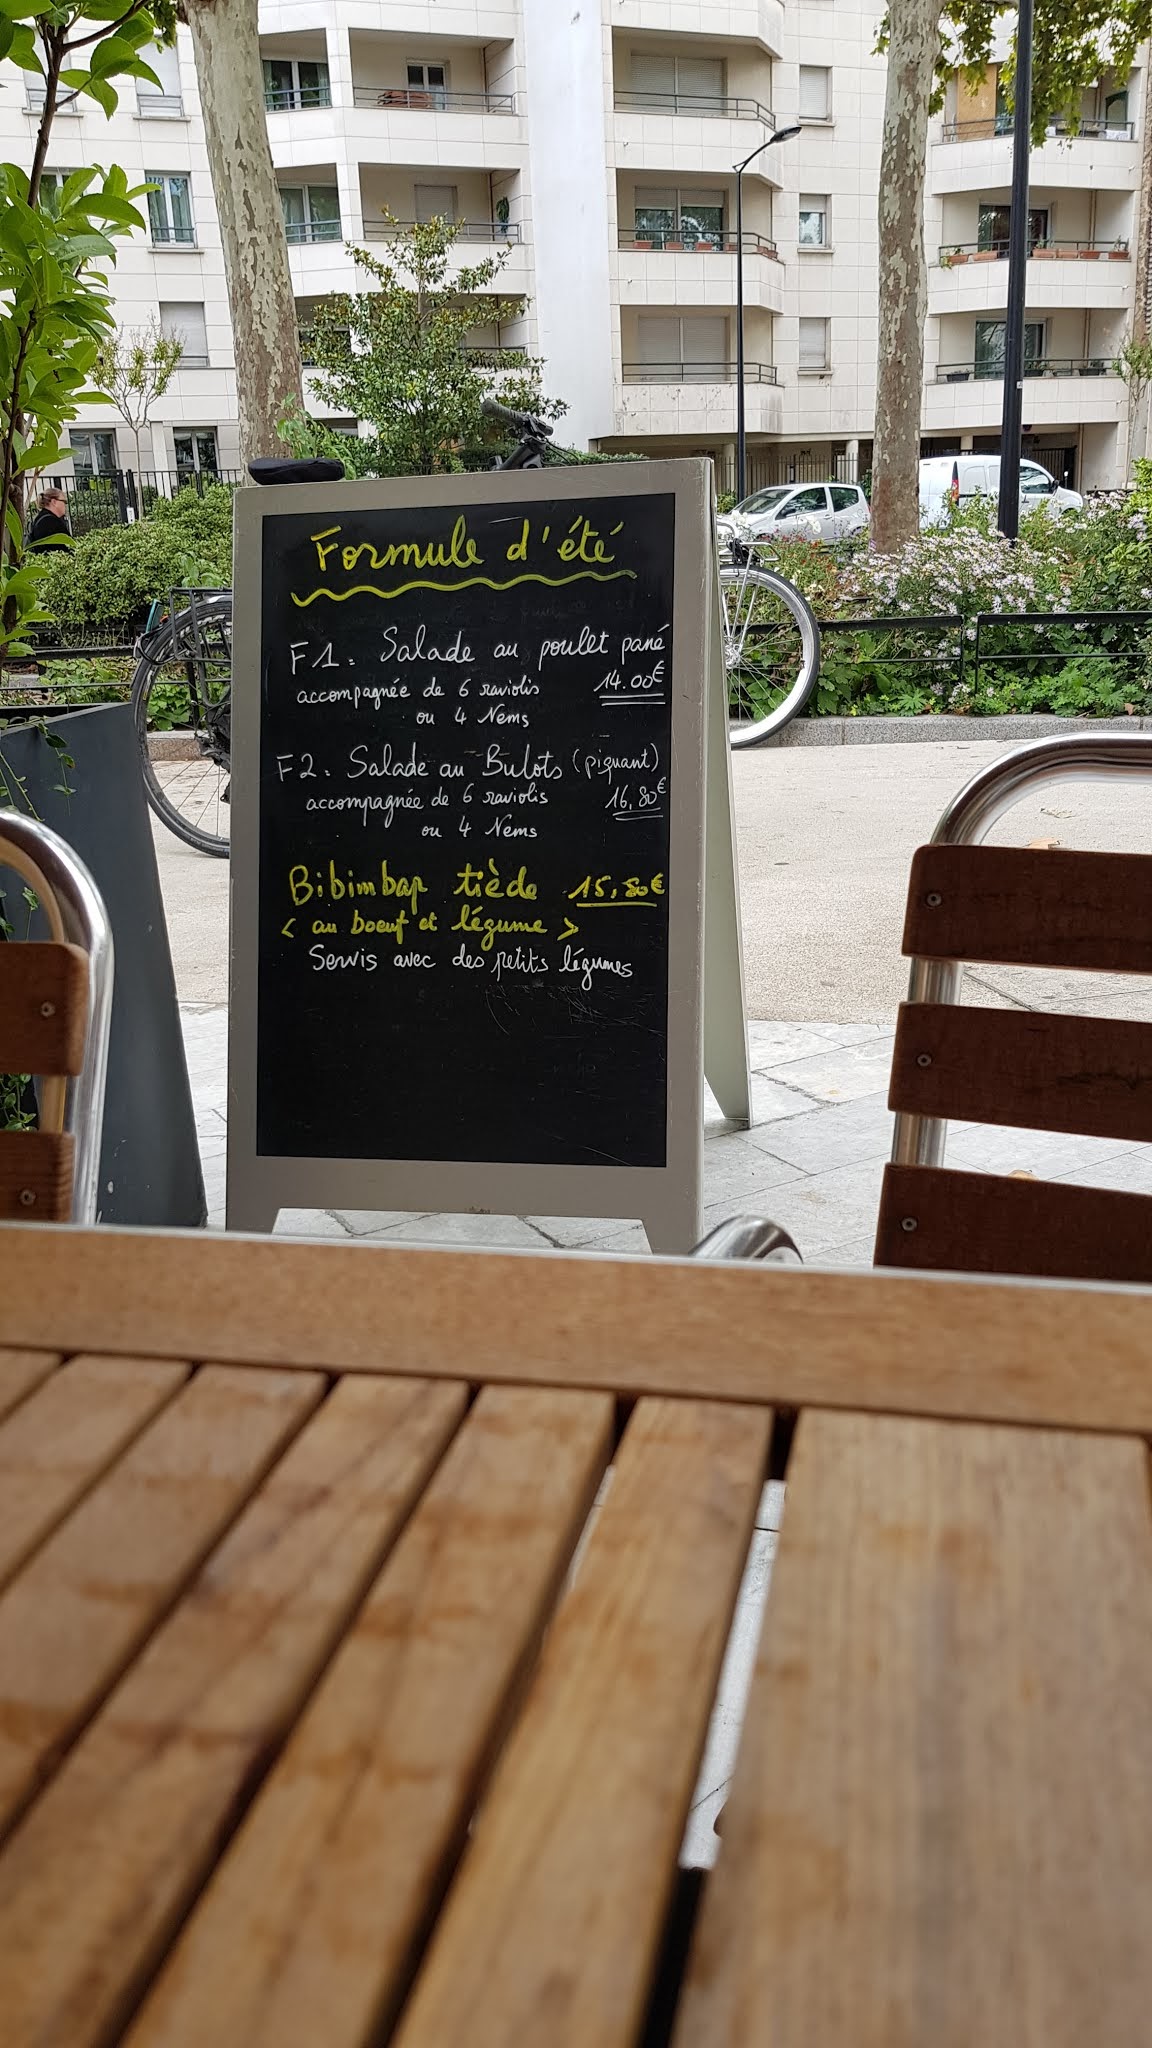 Formule d'été
F1. Salade au poulet pané
accompagnée de 6 raviolis 14.00€
ou 4 Nems
F2. Salade au Bulots (piquant)
accompagnée de 6 raviolis 16,80€
ou 4 Nems
Bibimbap tiède 15,80€
< au boeuf et légume >
Servis avec des petits légumes